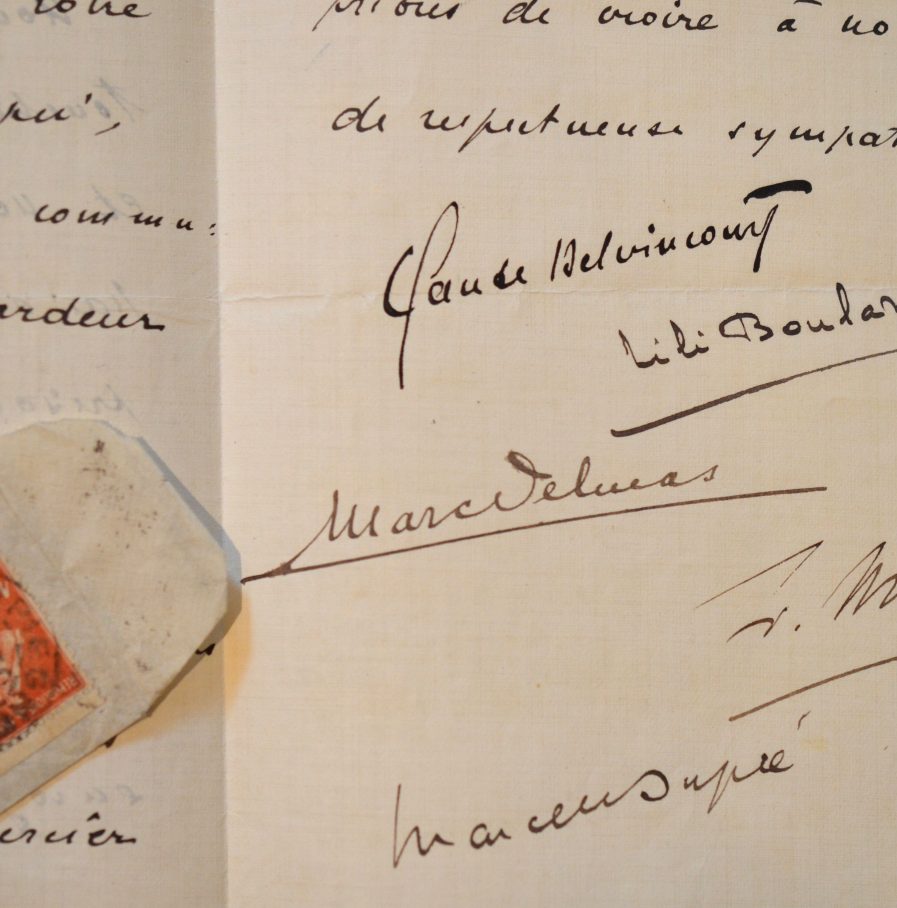 votre
commu:
ardeur
ercier
prions de croire à no
de respectueuse sympat
Claude Delvincourt
Lili Boulan
Marc Delmas
Marcel Dupré